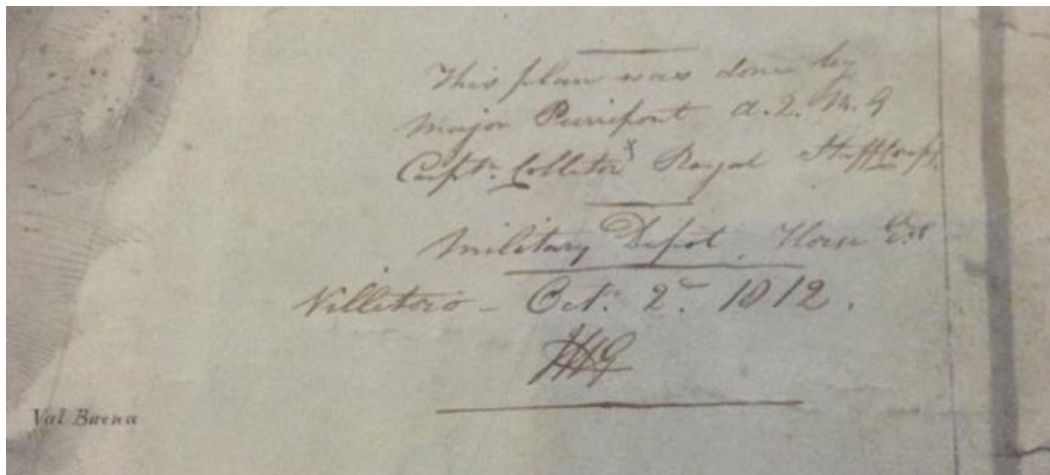 This plan was done by
Major Pierrepont A.Q.M.G
Capt.n Colleton Royal Staff Corps.
Military Depot. Horse Gds
Villatoro - Oct.r 2.d 1812.
Val Buena